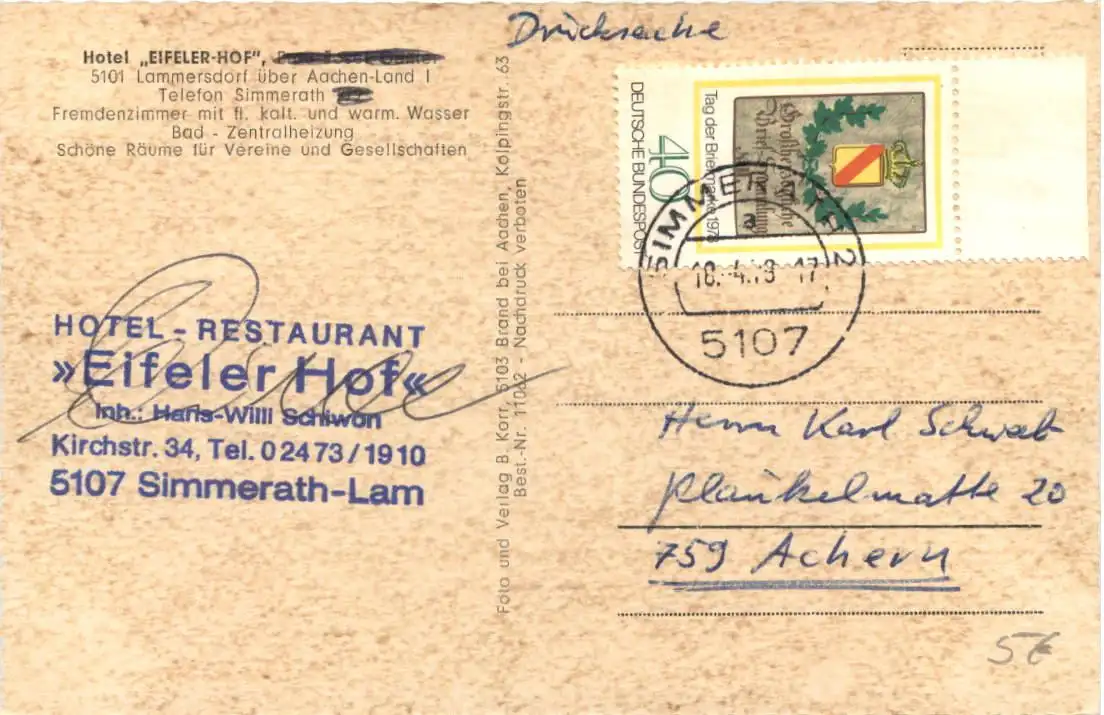 Drucksache
Hotel „EIFELER-HOF",
5101 Lammersdorf über Aachen-Land I
Telefon Simmerath
Fremdenzimmer mit fl. kalt. und warm. Wasser
Bad - Zentralheizung
Schöne Räume für Vereine und Gesellschaften
HOTEL - RESTAURANT
»Eifeler Hof«
Inh.: Hans-Willi Schiwon
Kirchstr. 34, Tel. 02473/1910
5107 Simmerath-Lam
Foto und Verlag B. Korr, 5103 Brand bei Aachen, Kolpingstr. 63
Best.-Nr. 11062 - Nachdruck verboten
Großherzogliche
Brief-Sammlung
Tag der Briefmarke 1978
40
DEUTSCHE BUNDESPOST
SIMMERATH 2
a
5107
Herrn Karl Schwab
Plänkelmatte 20
759 Achern
5€